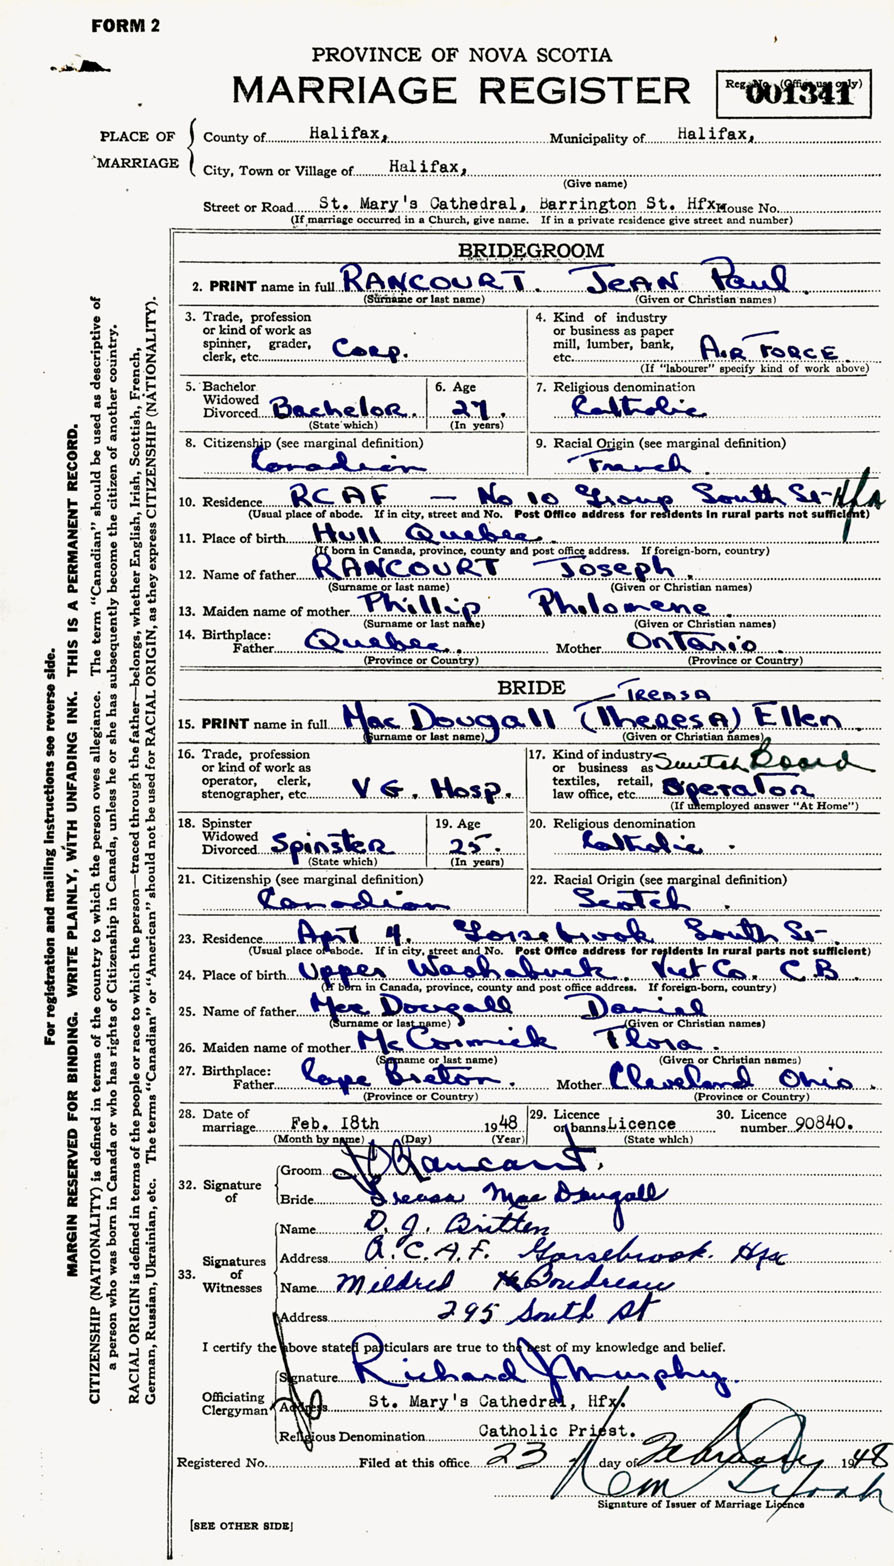 FORM 2
PROVINCE OF NOVA SCOTIA
MARRIAGE REGISTER
Reg. No. (Office use only)
001341
PLACE OF MARRIAGE
County of Halifax, Municipality of Halifax,
City, Town or Village of Halifax,
(Give name)
Street or Road St. Mary's Cathedral, Barrington St. Hfx House No.
(If marriage occurred in a Church, give name. If in a private residence give street and number)
BRIDEGROOM
2. PRINT name in full RANCOURT. JEAN Paul
(Surname or last name) (Given or Christian names)
3. Trade, profession or kind of work as spinner, grader, clerk, etc. Corp.
4. Kind of industry or business as paper mill, lumber, bank, etc. AIR FORCE
(If "labourer" specify kind of work above)
5. Bachelor Widowed Divorced Bachelor. (State which)
6. Age 27. (In years)
7. Religious denomination Catholic
8. Citizenship (see marginal definition) Canadian
9. Racial Origin (see marginal definition) French
10. Residence RCAF — No 10 Group South St Hfx
(Usual place of abode. If in city, street and No. Post Office address for residents in rural parts not sufficient)
11. Place of birth Hull Quebec
(If born in Canada, province, county and post office address. If foreign-born, country)
12. Name of father RANCOURT Joseph.
(Surname or last name) (Given or Christian names)
13. Maiden name of mother Phillip Philomene
(Surname or last name) (Given or Christian names)
14. Birthplace: Father Quebec. Mother Ontario
(Province or Country) (Province or Country)
BRIDE
TREASA
15. PRINT name in full MacDougall (Theresa) Ellen
(Surname or last name) (Given or Christian names)
16. Trade, profession or kind of work as operator, clerk, stenographer, etc. V G. Hosp.
17. Kind of industry or business as textiles, retail, law office, etc. Switch Board Operator
(If unemployed answer "At Home")
18. Spinster Widowed Divorced Spinster (State which)
19. Age 25. (In years)
20. Religious denomination Catholic.
21. Citizenship (see marginal definition) Canadian
22. Racial Origin (see marginal definition) Scotch
23. Residence Apt 4. Gorsebrook South St-
(Usual place of abode. If in city, street and No. Post Office address for residents in rural parts not sufficient)
24. Place of birth Upper Washabuck Vict Co. C B
(If born in Canada, province, county and post office address. If foreign-born, country)
25. Name of father MacDougall Daniel
(Surname or last name) (Given or Christian names)
26. Maiden name of mother McCormick Flora.
(Surname or last name) (Given or Christian names)
27. Birthplace: Father Cape Breton. Mother Cleveland Ohio.
(Province or Country) (Province or Country)
28. Date of marriage Feb. 18th 1948
(Month by name) (Day) (Year)
29. Licence or banns Licence (State which)
30. Licence number 90840.
32. Signature of
Groom J P Rancourt.
Bride Treasa MacDougall
33. Signatures of Witnesses
Name D. J. Britten
Address R.C.A.F. Gorsebrook. Hfx
Name Mildred Boudreau
Address 295 South St
I certify the above stated particulars are true to the best of my knowledge and belief.
Officiating Clergyman
Signature Richard J Murphy.
Address St. Mary's Cathedral, Hfx.
Religious Denomination Catholic Priest.
Registered No. Filed at this office 23 day of February 1948
Signature of Issuer of Marriage Licence
[SEE OTHER SIDE]
For registration and mailing instructions see reverse side.
MARGIN RESERVED FOR BINDING. WRITE PLAINLY, WITH UNFADING INK. THIS IS A PERMANENT RECORD.
CITIZENSHIP (NATIONALITY) is defined in terms of the country to which the person owes allegiance. The term "Canadian" should be used as descriptive of
a person who was born in Canada or who has rights of Citizenship in Canada, unless he or she has subsequently become the citizen of another country.
RACIAL ORIGIN is defined in terms of the people or race to which the person—traced through the father—belongs, whether English, Irish, Scottish, French,
German, Russian, Ukrainian, etc. The terms "Canadian" or "American" should not be used for RACIAL ORIGIN, as they express CITIZENSHIP (NATIONALITY).